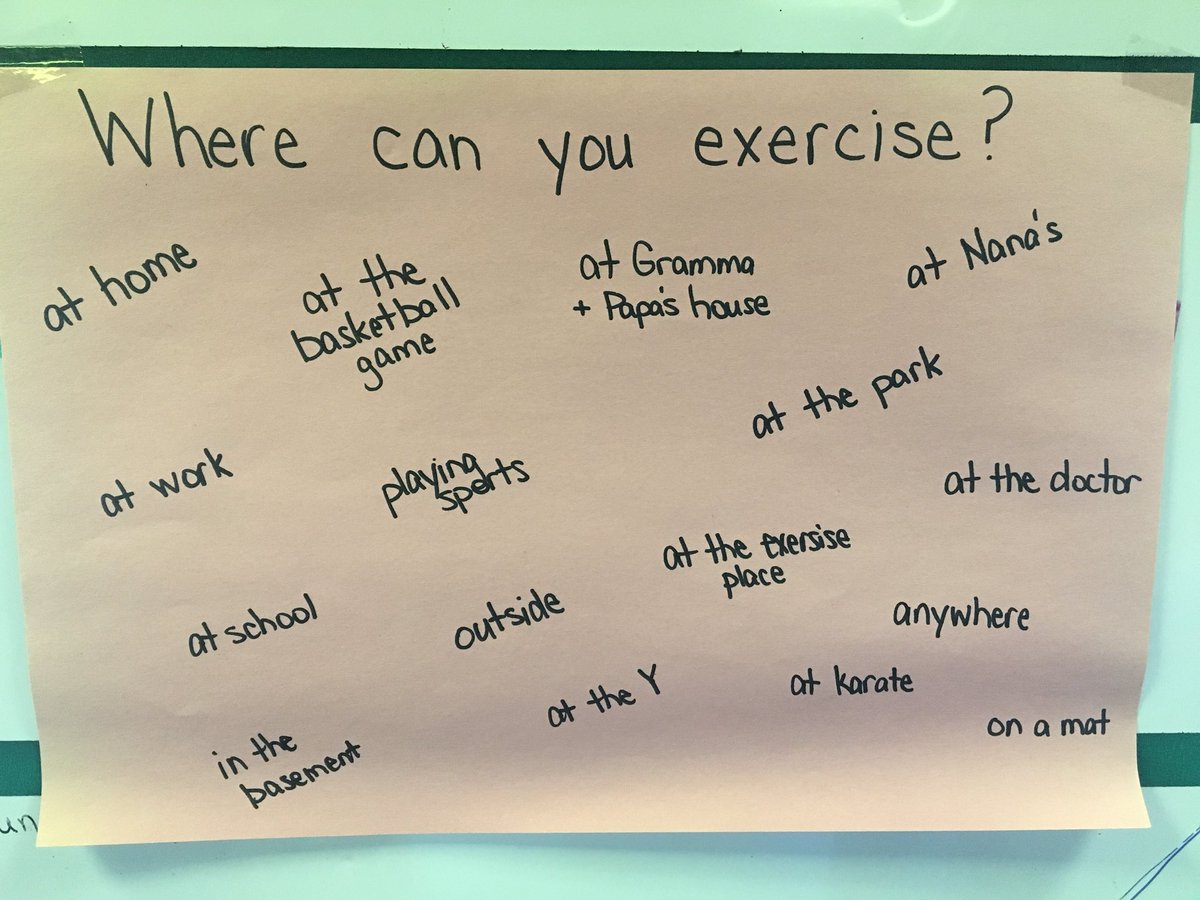 Where can you exercise?
at home
at the
basketball
game
at Gramma
+ Papa's house
at Nana's
at the park
at work
playing
sports
at the doctor
at the exersise
place
at school
outside
anywhere
at the Y
at karate
on a mat
in the
basement
un